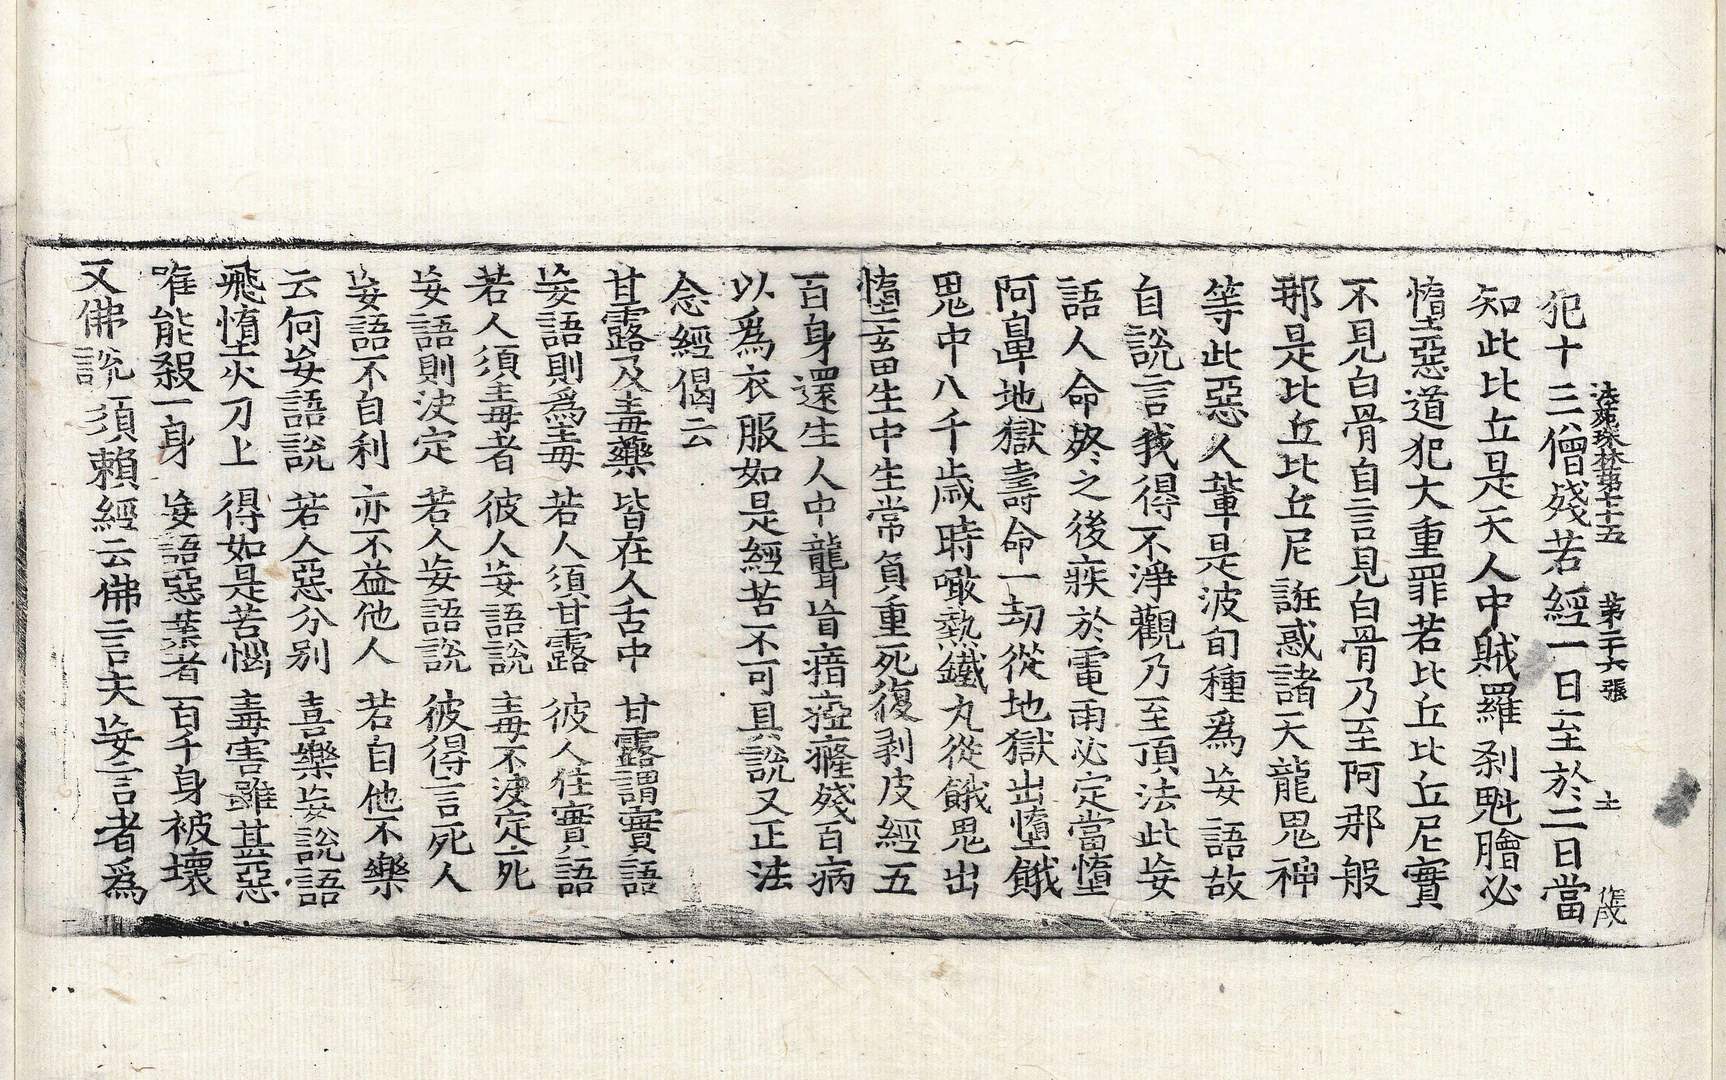 法苑珠林第七十五 第二十六張 土 作成
犯十三僧殘若經一日至於二日當
知此比丘是天人中賊羅刹魁膾必
墮惡道犯大重罪若比丘比丘尼實
不見白骨自言見白骨乃至阿那般
那是比丘比丘尼誑惑諸天龍鬼神
等此惡人輩是波旬種爲妄語故
自說言我得不淨觀乃至頂法此妄
語人命終之後疾於電雨必定當墮
阿鼻地獄壽命一劫從地獄出墮餓
鬼中八千歲時噉熱鐵丸從餓鬼出
墮畜生中生常負重死復剥皮經五
百身還生人中聾盲瘖瘂癃殘百病
以爲衣服如是經苦不可具說又正法
念經偈云
甘露及毒藥 皆在人舌中 甘露謂實語
妄語則爲毒 若人須甘露 彼人住實語
若人須毒者 彼人妄語說 毒不决定死
妄語則决定 若人妄語說 彼得言死人
妄語不自利 亦不益他人 若自他不樂
云何妄語說 若人惡分別 喜樂妄說語
飛墮火刀上 得如是苦惱 毒害雖甚惡
唯能殺一身 妄語惡業者 百千身被壞
又佛說須賴經云佛言夫妄言者爲